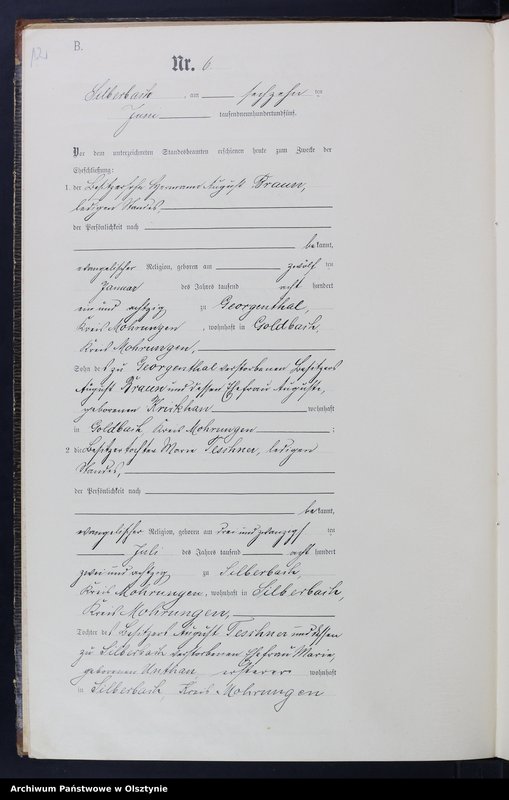 B.
Nr. 6.
Silberbach, am sechzehn ten
Juni tausendneunhundertundfünf.
Vor dem unterzeichneten Standesbeamten erschienen heute zum Zwecke der
Eheschließung:
1. der Besitzersohn Hermann August Braun,
ledigen Standes,
der Persönlichkeit nach
bekannt,
evangelischer Religion, geboren am zwölf ten
Januar des Jahres tausend acht hundert
ein und achtzig zu Georgenthal,
Kreis Mohrungen, wohnhaft in Goldbach,
Kreis Mohrungen,
Sohn des zu Georgenthal verstorbenen Besitzers
August Braun und dessen Ehefrau Auguste,
geborenen wohnhaft
in Goldbach Kreis Mohrungen;
2. die Besitzertochter Marie Teschner, ledigen
Standes,
der Persönlichkeit nach
bekannt,
evangelischer Religion, geboren am drei und zwanzigs ten
Juli des Jahres tausend acht hundert
zwei und achtzig zu Silberbach,
Kreis Mohrungen, wohnhaft in Silberbach,
Kreis Mohrungen,
Tochter des Besitzers August Teschner und dessen
zu Silberbach verstorbenen Ehefrau Marie,
geborenen Unthan, ersterer wohnhaft
in Silberbach, Kreis Mohrungen
Archiwum Państwowe w Olsztynie